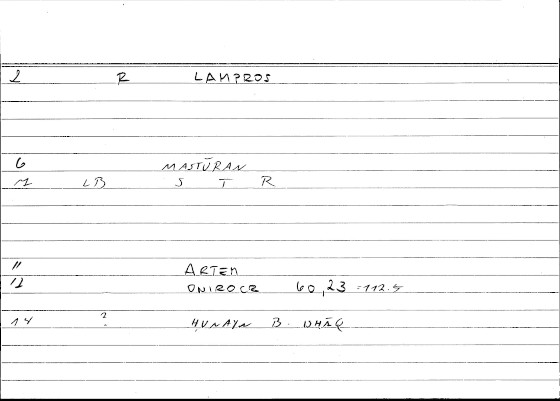 2 R LAMPROS
6 MASTŪRAN
M LB S T R
11 ARTEM
12 ONIROCR 60,23 =112.5
14 ? ḤUNAYN B. ISḤĀQ